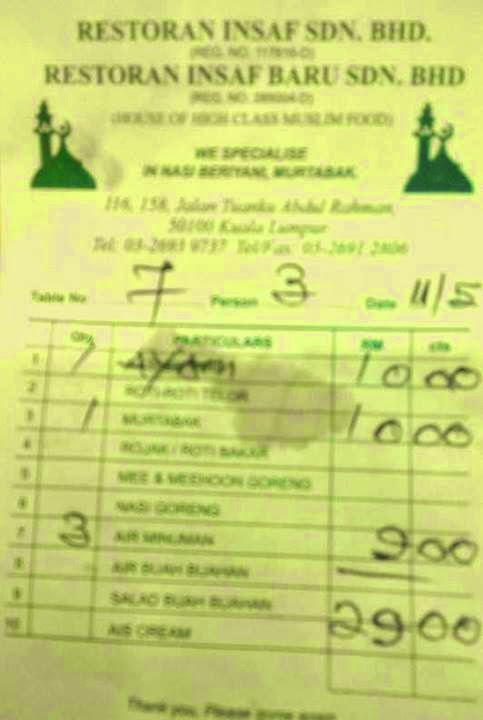 RESTORAN INSAF SDN. BHD.
RESTORAN INSAF BARU SDN. BHD
(HOUSE OF HIGH CLASS MUSLIM FOOD)
WE SPECIALISE
IN NASI BERIYANI, MURTABAK.
116, 158, Jalan Tuanku Abdul Rahman,
50100 Kuala Lumpur
Tel: 03-2693 9737 Tel/Fax: 03-2691 2806
Table No 7 Person 3 Date 11/5
Qty PARTICULARS RM cts
1 1 AYAM 10 00
2 ROTI-ROTI TELOR
3 1 MURTABAK 10 00
4 ROJAK / ROTI BAKAR
5 MEE & MEEHOON GORENG
6 NASI GORENG
7 3 AIR MINUMAN 9 00
8 AIR BUAH BUAHAN
9 SALAD BUAH BUAHAN 29 00
10 AIS CREAM
Thank you, Please come again